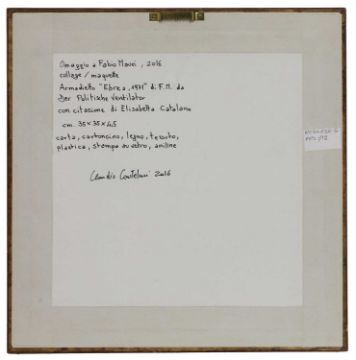 Omaggio a Fabio Mauri, 2016
collage / maquette
Armadietto "Ebrea, 1971" di F.M. da
Der Politische Ventilator
con citazione di Elisabetta Catalano
cm. 35×35×4,5
carta, cartoncino, legno, tessuto,
plastica, stampa su vetro, aniline
Claudio 2016